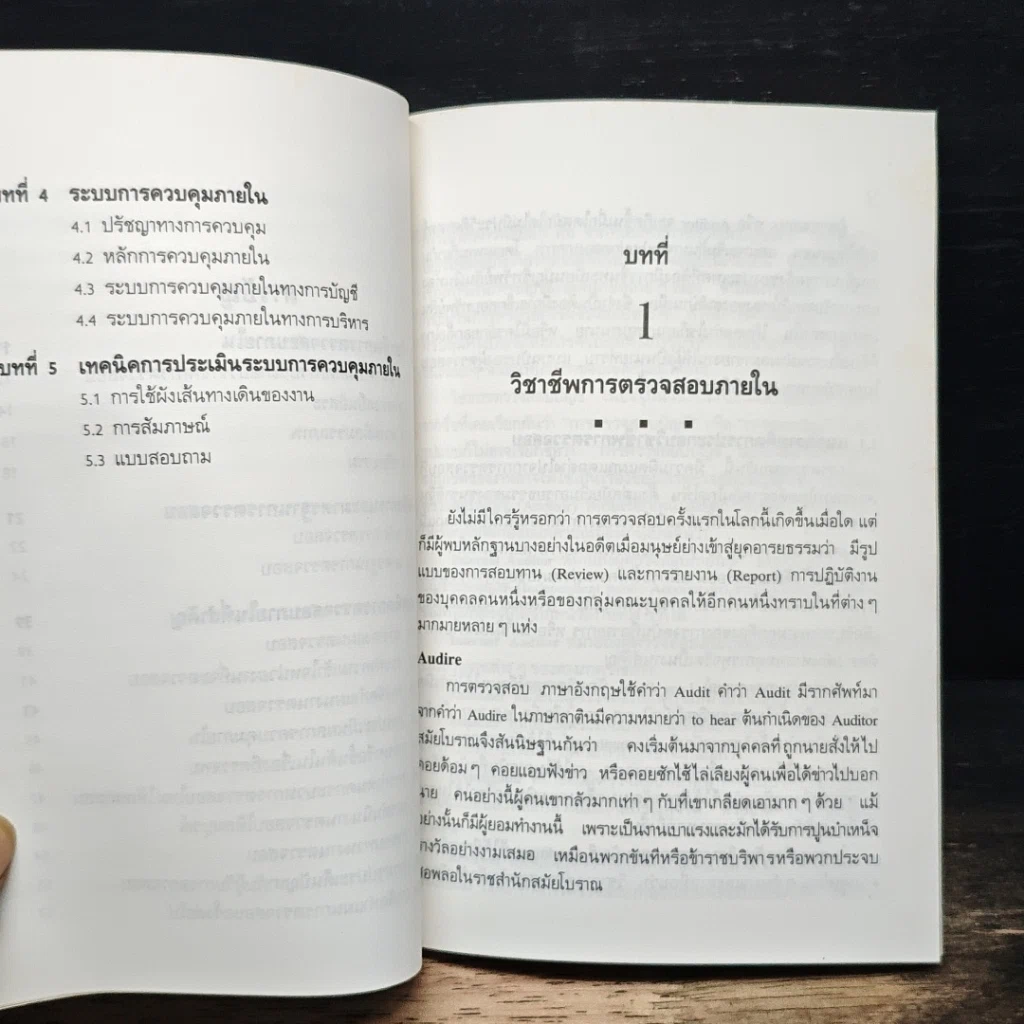 บทที่ 4 ระบบการควบคุมภายใน
4.1 ปรัชญาทางการควบคุม
4.2 หลักการควบคุมภายใน
4.3 ระบบการควบคุมภายในทางการบัญชี
4.4 ระบบการควบคุมภายในทางการบริหาร
บทที่ 5 เทคนิคการประเมินระบบการควบคุมภายใน
5.1 การใช้ผังเส้นทางเดินของงาน
5.2 การสัมภาษณ์
5.3 แบบสอบถาม
บทที่
1
วิชาชีพการตรวจสอบภายใน
ยังไม่มีใครรู้หรอกว่า การตรวจสอบครั้งแรกในโลกนี้เกิดขึ้นเมื่อใด แต่
ก็มีผู้พบหลักฐานบางอย่างในอดีตเมื่อมนุษย์ย่างเข้าสู่ยุคอารยธรรมว่า มีรูป
แบบของการสอบทาน (Review) และการรายงาน (Report) การปฏิบัติงาน
ของบุคคลคนหนึ่งหรือของกลุ่มคณะบุคคลให้อีกคนหนึ่งทราบในที่ต่าง ๆ
มากมายหลาย ๆ แห่ง
Audire
การตรวจสอบ ภาษาอังกฤษใช้คำว่า Audit คำว่า Audit มีรากศัพท์มา
จากคำว่า Audire ในภาษาลาตินมีความหมายว่า to hear ต้นกำเนิดของ Auditor
สมัยโบราณจึงสันนิษฐานกันว่า คงเริ่มต้นมาจากบุคคลที่ถูกนายสั่งให้ไป
คอยด้อม ๆ คอยแอบฟังข่าว หรือคอยซักไซ้ไล่เลียงผู้คนเพื่อได้ข่าวไปบอก
นาย คนอย่างนี้ผู้คนเขากลัวมากเท่า ๆ กับที่เขาเกลียดเอามาก ๆ ด้วย แม้
อย่างนั้นก็มีผู้ยอมทำงานนี้ เพราะเป็นงานเบาแรงและมักได้รับการปูนบำเหน็จ
รางวัลอย่างงามเสมอ เหมือนพวกขันทีหรือข้าราชบริพารหรือพวกประจบ
สอพลอในราชสำนักสมัยโบราณ